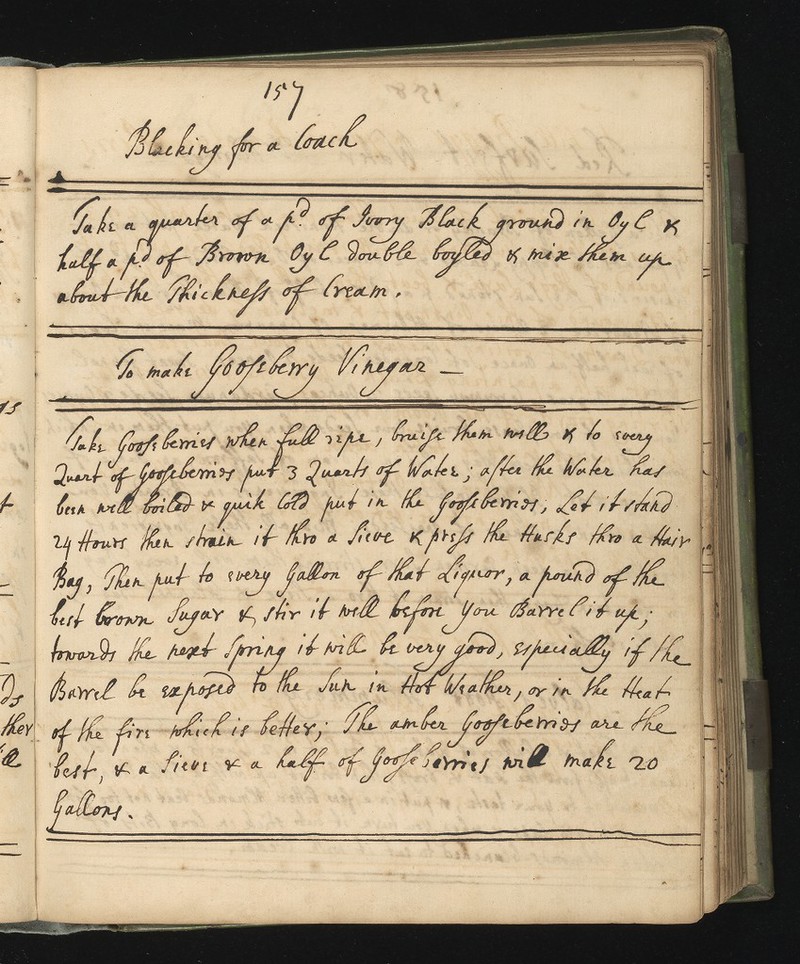 157
Blacking for a Coach
Take a quarter of a pd of Ivory Black ground in Oyl &
half a pd of Brown Oyl double boyled & mix them up
about the Thickneſs of Cream.
To make Gooſeberry Vinegar —
Take Gooſeberries when full ripe, bruiſe them well & to every
Quart of Gooſeberries put 3 Quarts of Water; after the Water has
been well boiled & quik Cold put in the Gooſeberries, Let it stand
24 Hours then strain it thro a Sieve & preſs the Husks thro a Hair
Bag, Then put to every Gallon of that Liquor, a pound of the
best brown Sugar & stir it well before you Barrel it up;
towards the next Spring it will be very good, especially if the
Barrel be exposed to the Sun in Hot Weather, or in the Heat
of the fire which is better; The amber Gooſeberries are the
best, & a Sieve & a half of Gooſeberries will make 20
Gallons.
ds
ther
ill